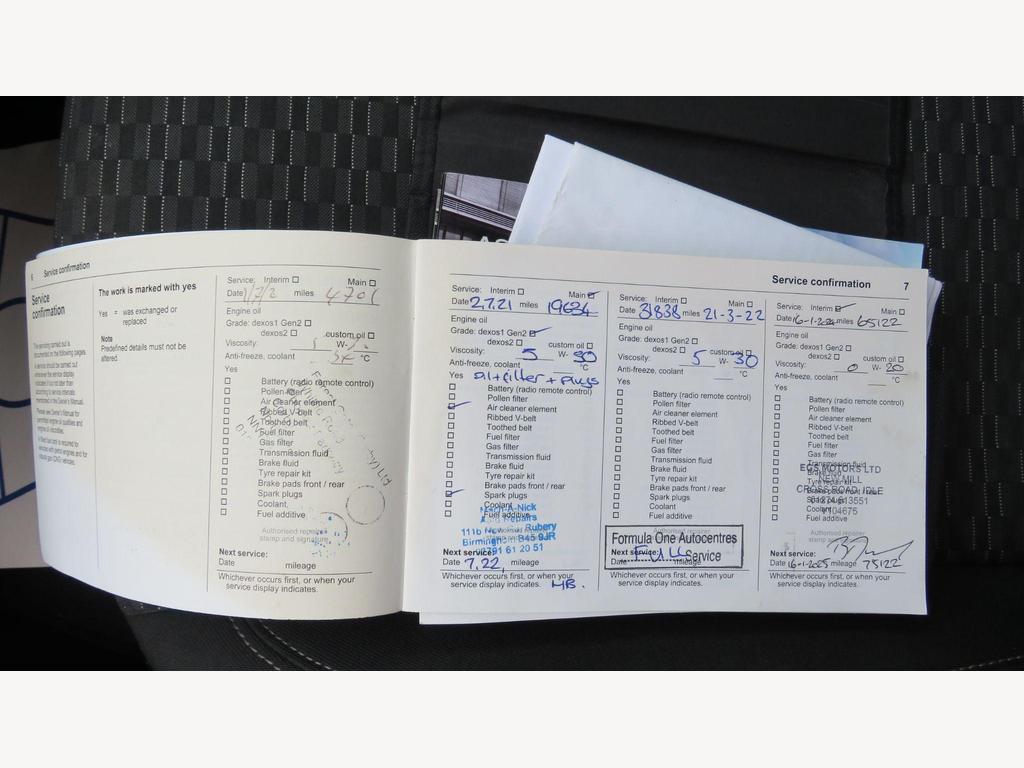 6 Service confirmation
Service
confirmation
The work is marked with yes
Yes = was exchanged or
replaced
Note
Predefined details must not be
altered.
Service: Interim ☐ Main ☐
Date miles 4701
Engine oil
Grade: dexos1 Gen2 ☐
dexos2 ☐ custom oil ☐
Viscosity: W-
Anti-freeze, coolant °C
Yes
☐ Battery (radio remote control)
☐ Pollen filter
☐ Air cleaner element
☐ Ribbed V-belt
☐ Toothed belt
☐ Fuel filter
☐ Gas filter
☐ Transmission fluid
☐ Brake fluid
☐ Tyre repair kit
☐ Brake pads front / rear
☐ Spark plugs
☐ Coolant,
☐ Fuel additive
Authorised repairer
stamp and signature
Next service:
Date mileage
Whichever occurs first, or when your
service display indicates.
Service confirmation 7
Service: Interim ☐ Main ☑
Date 2.7.21 miles 19634
Engine oil
Grade: dexos1 Gen2 ☑
dexos2 ☐ custom oil ☐
Viscosity: 5 W- 30
Anti-freeze, coolant °C
Yes oil+filter + plugs
☐ Battery (radio remote control)
☐ Pollen filter
☑ Air cleaner element
☐ Ribbed V-belt
☐ Toothed belt
☐ Fuel filter
☐ Gas filter
☐ Transmission fluid
☐ Brake fluid
☐ Tyre repair kit
☐ Brake pads front / rear
☑ Spark plugs
☐ Coolant
☐ Fuel additive
-Nick
Repairs
111b Rubery
Birmingham B45 9JR
61 20 51
Next service:
Date 7.22, mileage
Whichever occurs first, or when your
service display indicates. MB.
Service: Interim ☐ Main ☐
Date 31838 miles 21-3-22
Engine oil
Grade: dexos1 Gen2 ☐
dexos2 ☐ custom oil ☐
Viscosity: 5 W- 30
Anti-freeze, coolant °C
Yes
☐ Battery (radio remote control)
☐ Pollen filter
☐ Air cleaner element
☐ Ribbed V-belt
☐ Toothed belt
☐ Fuel filter
☐ Gas filter
☐ Transmission fluid
☐ Brake fluid
☐ Tyre repair kit
☐ Brake pads front / rear
☐ Spark plugs
☐ Coolant
☐ Fuel additive
Authorised repairer
Formula One Autocentres
Next service: FULL Service
Date mileage
Whichever occurs first, or when your
service display indicates.
Service: Interim ☑ Main ☐
Date 16-1-2024 miles 65122
Engine oil
Grade: dexos1 Gen2 ☐
dexos2 ☐ custom oil ☐
Viscosity: 0 W- 20
Anti-freeze, coolant °C
Yes
☐ Battery (radio remote control)
☐ Pollen filter
☐ Air cleaner element
☐ Ribbed V-belt
☐ Toothed belt
☐ Fuel filter
☐ Gas filter
☐ Transmission fluid
☐ Brake fluid
☐ Tyre repair kit
☐ Brake pads front / rear
☐ Spark plugs
☐ Coolant
☐ Fuel additive
MOTORS LTD
MILL
CROSS ROAD, IDLE
01274 613551
Authorised repairer
Next service:
Date 16-1-2025 mileage 75122
Whichever occurs first, or when your
service display indicates.